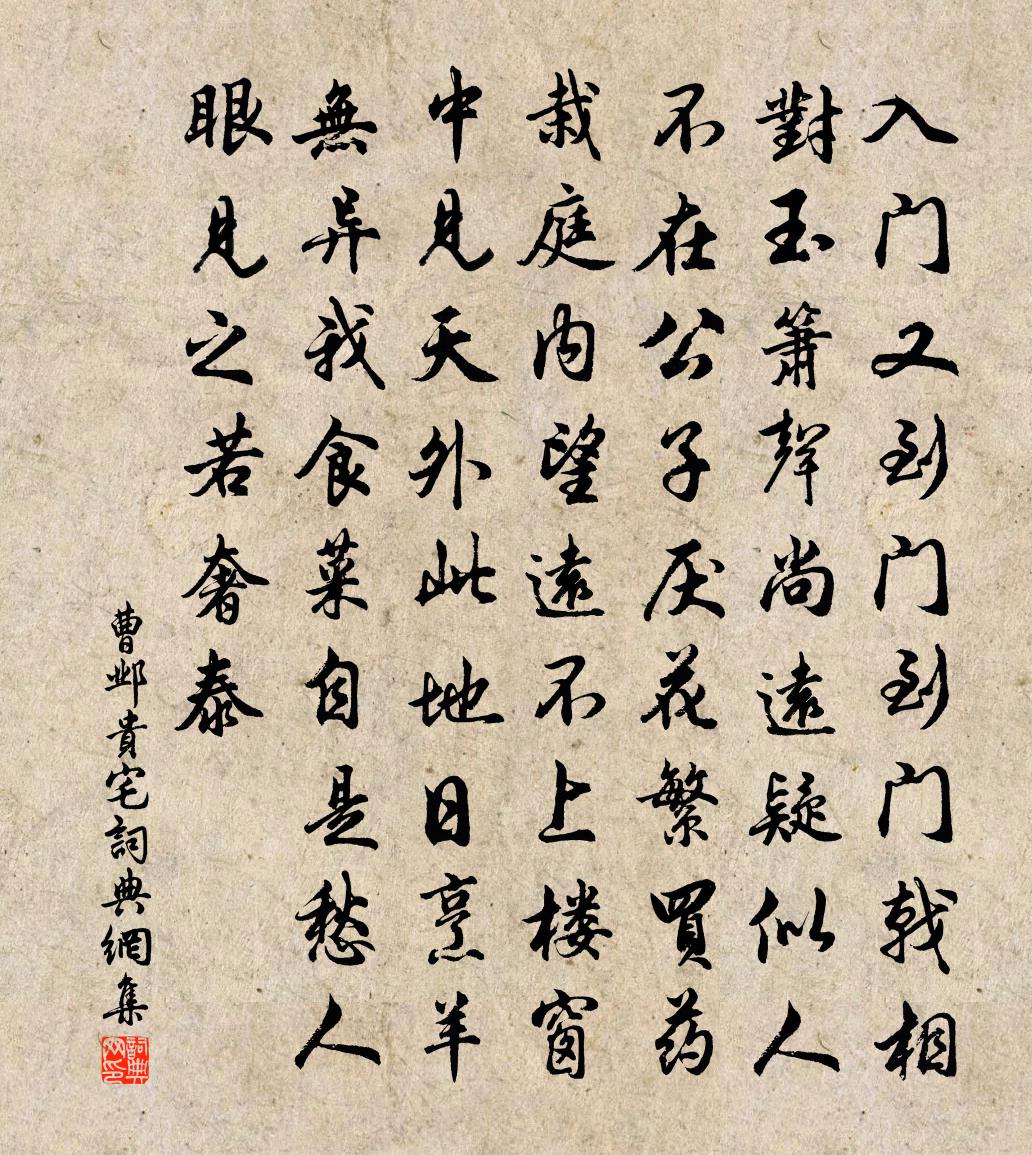 入门又到门到门戟相
對玉箫聲尚遠疑似人
不在公子厌花繁買药
栽庭内望遠不上楼窗
中見天外此地日烹羊
無异我食菜自是愁人
眼見之若奢泰
曹邺貴宅詞典網集
詞典网印